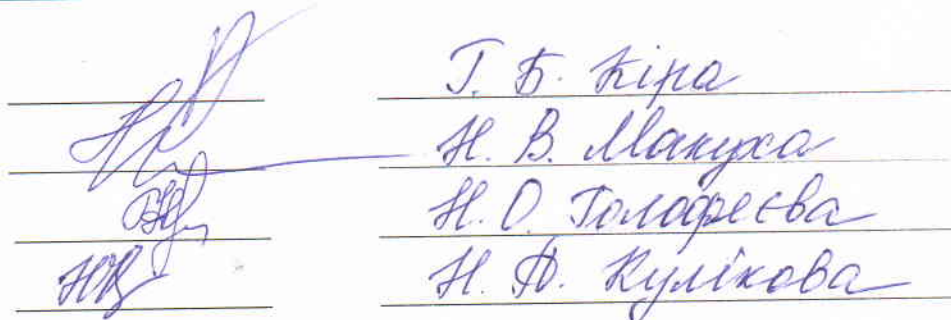 Г. Б. Кіра
Н. В. Макуха
Н. О. Голофеєва
Н. В. Кулікова